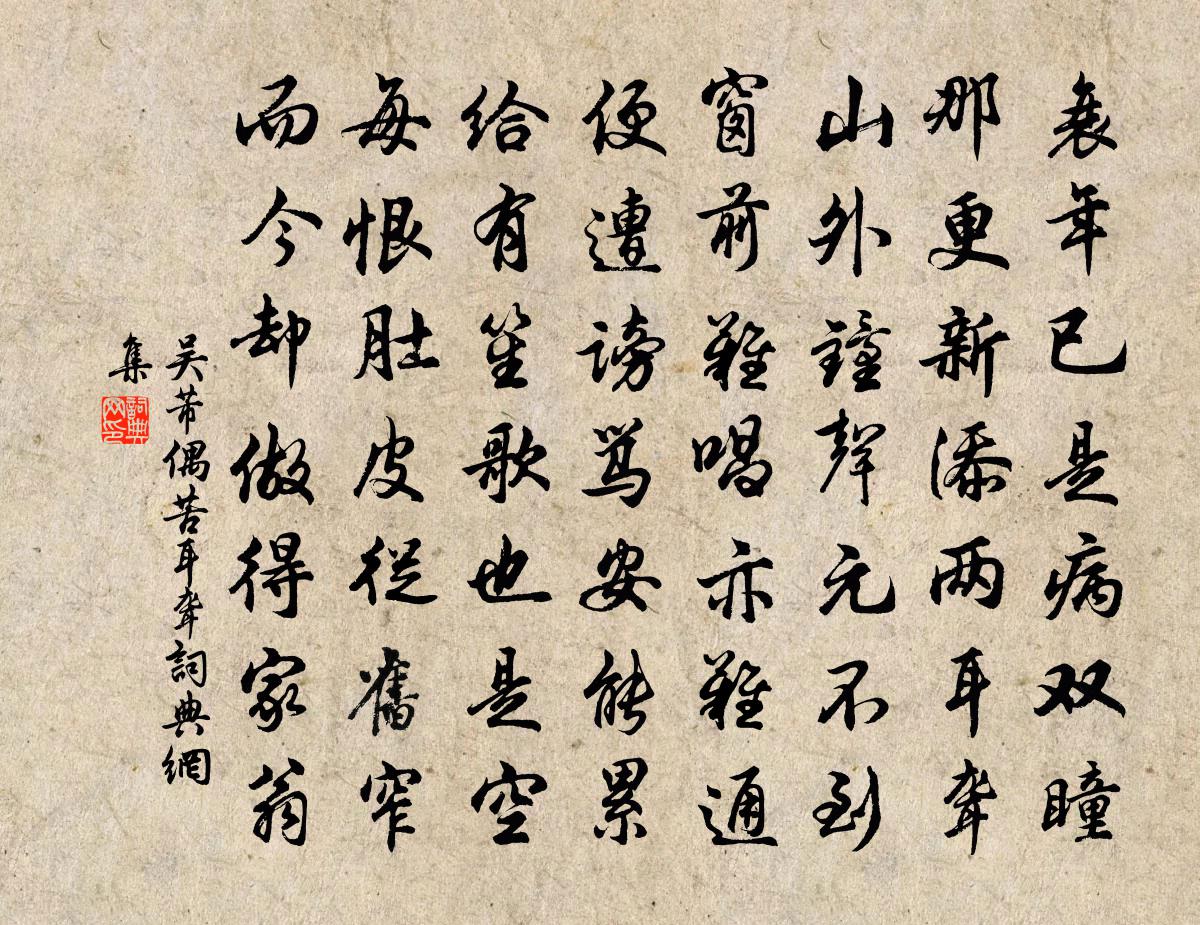 衰年已是病双瞳
那更新添两耳聋
山外鐘聲元不到
窗前難唱亦難通
便遭謗骂安能累
给有笙歌也是空
每恨肚皮從舊窄
而今却做得家翁
吴芾偶苦耳聋詞典網
集
詞典网印